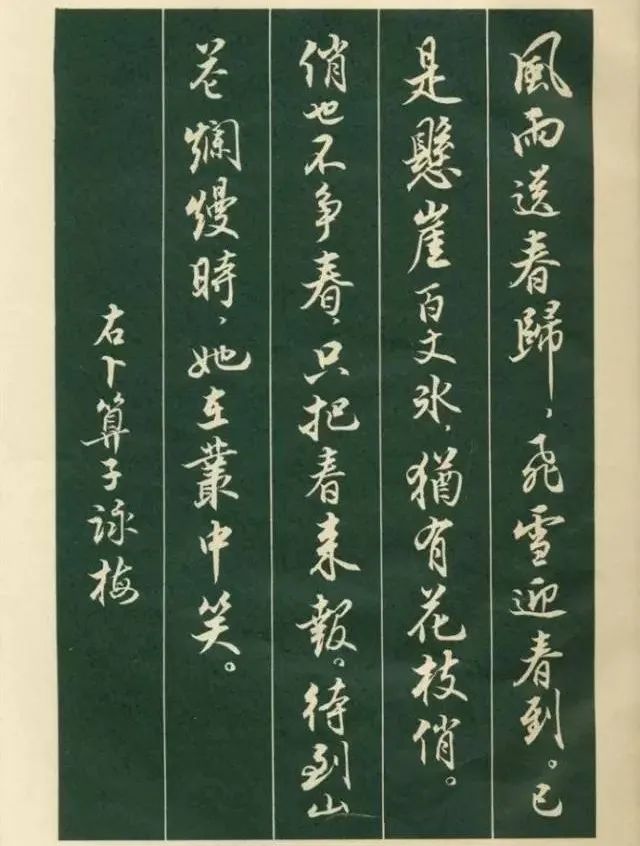 風雨送春歸，飛雪迎春到。已
是懸崖百丈冰，猶有花枝俏。
俏也不争春，只把春来報。待到山
花爛熳時，她在叢中笑。
右卜算子詠梅